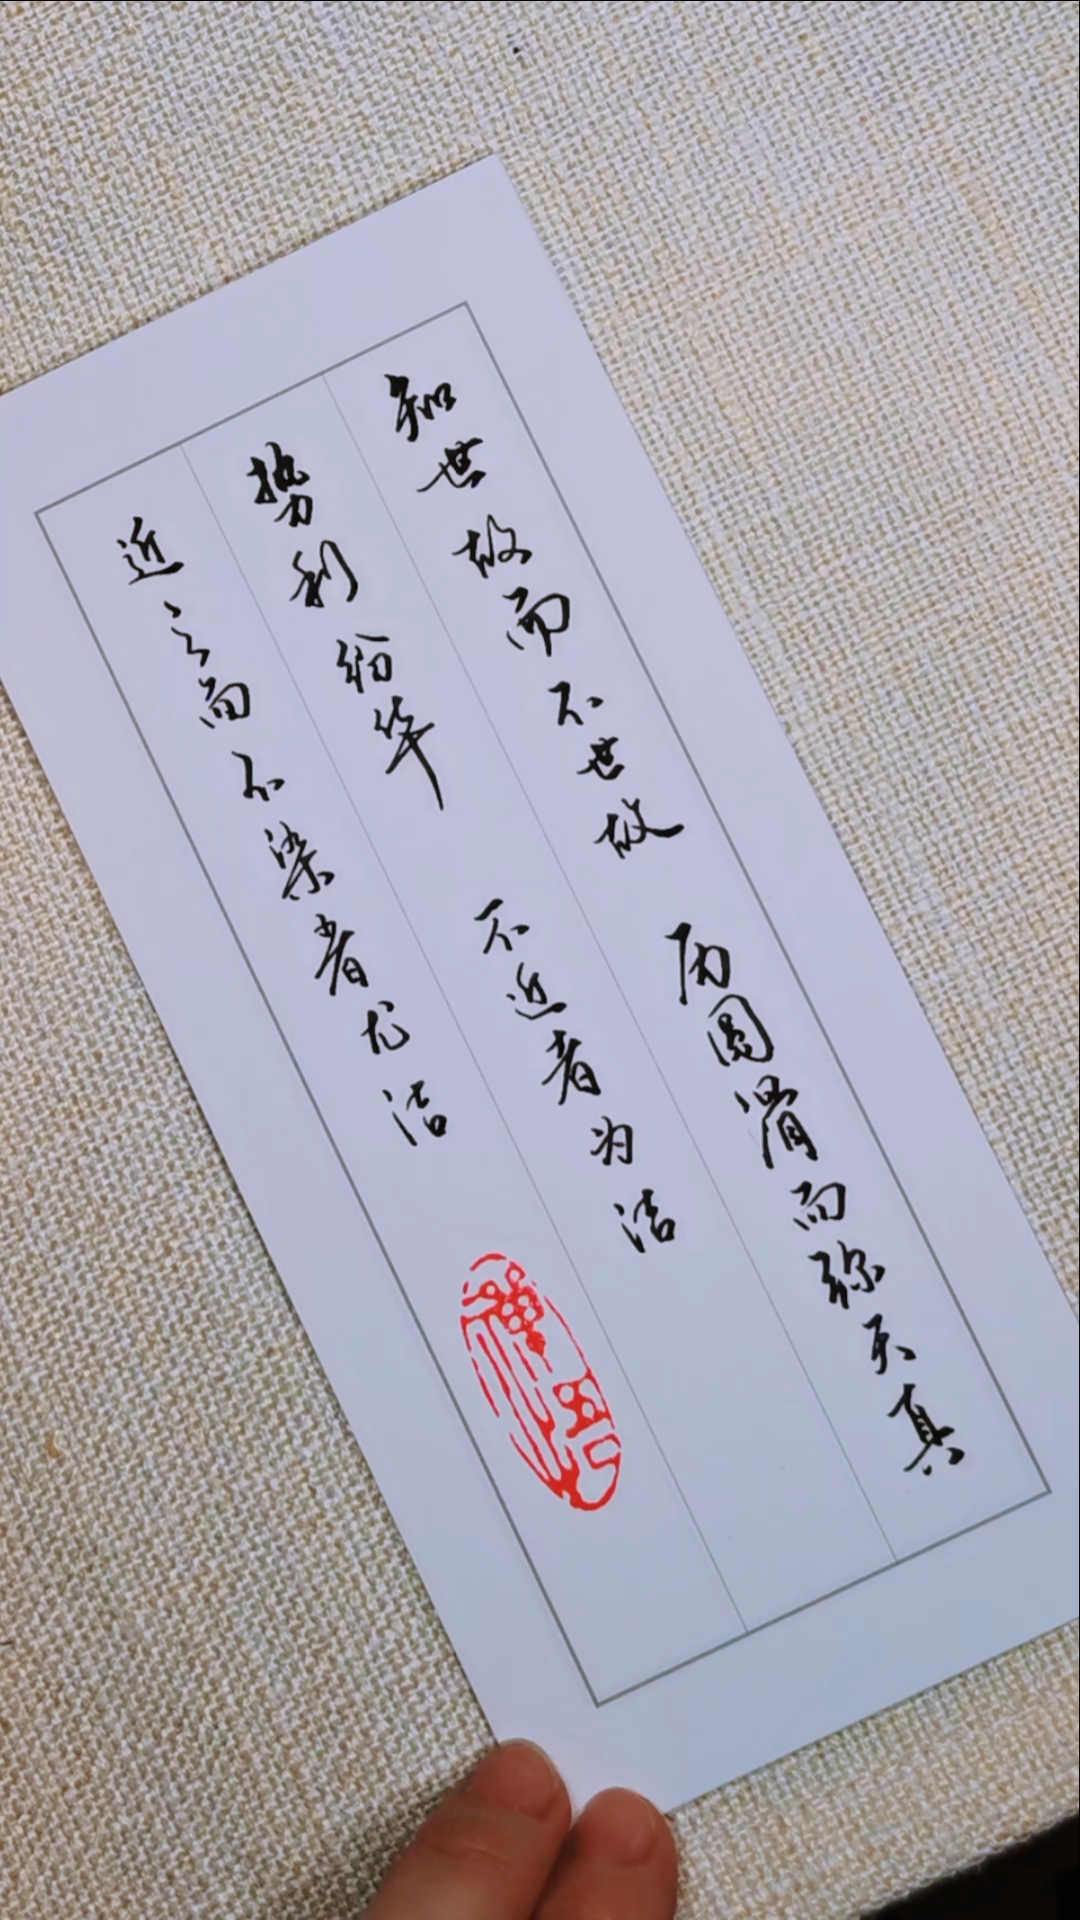 知世故而不世故 历圆滑而弥天真
势利纷华 不近者为洁
近之而不染者尤洁
禅悟